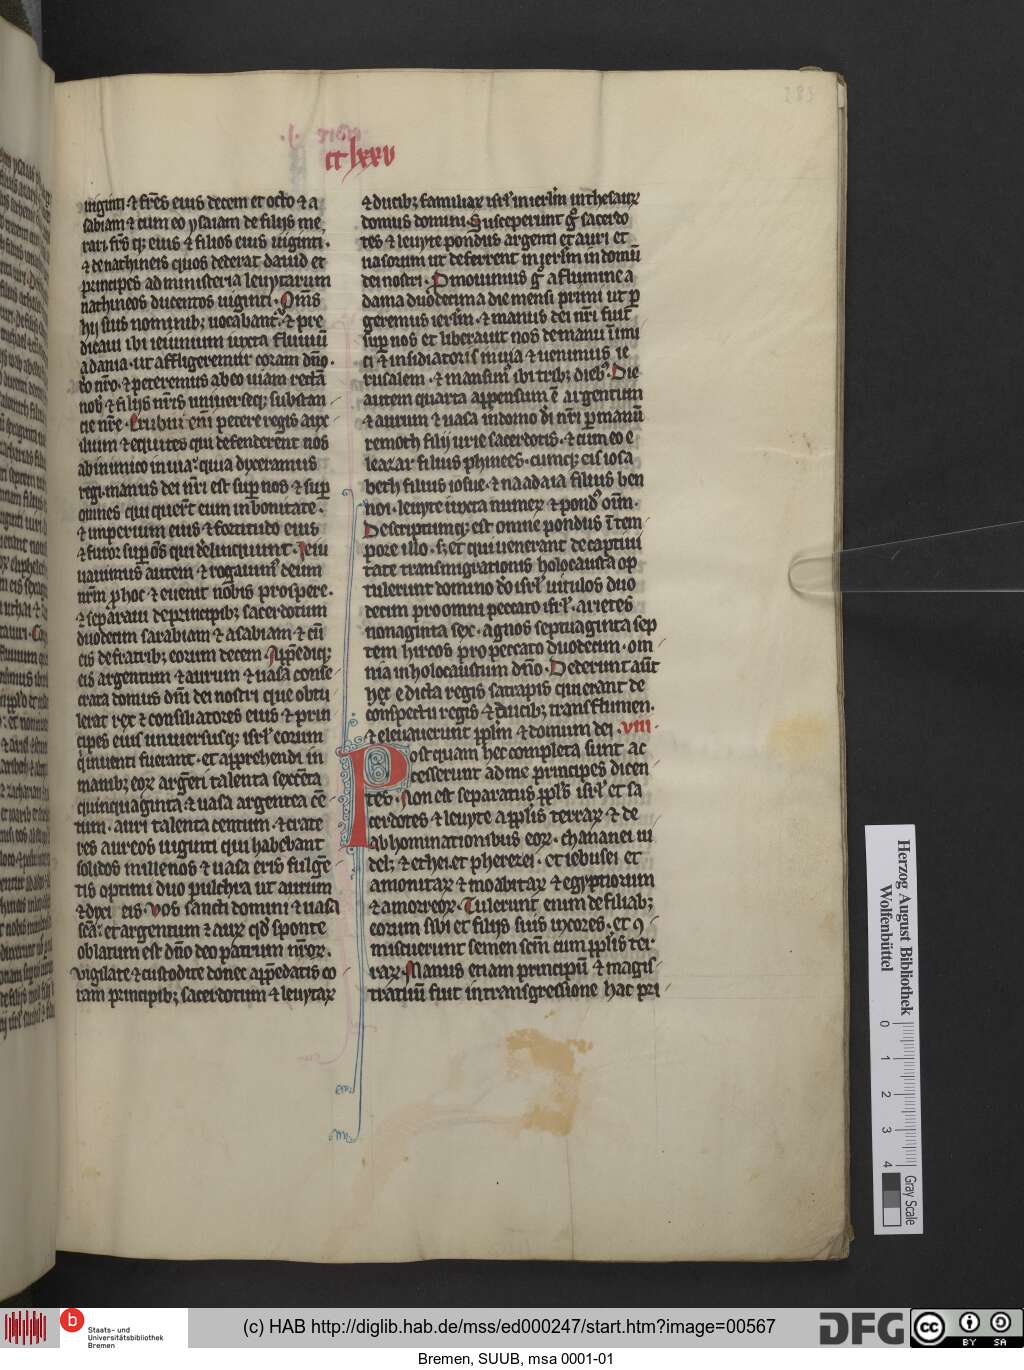 cclxxv
uiginti ⁊ fr̄es eius decem et octo ⁊ a
sabiam ⁊ cum eo ysaiam de filijs me
rari fr̄s q; eius ⁊ filios eius uiginti ·
⁊ de nathineis quos dederat dauid et
principes ad ministeria leuytarum
nathineos ducentos uiginti · Om̄s
hij suis nominib; uocabant᷑ · ⁊ pre
dicaui ibi ieiunium iuxta fluuiū
adania · ut affligeremur coram dño ·
do nr̄o · ⁊ peteremus ab eo uiam rectā
nob̄ ⁊ filijs nr̄is uniuerseq; substan
cie nr̄e · Erubui eni᷑ petere regis aux
ilium ⁊ equites qui defenderent nos
ab inimico in uia · quia dixeramus
regi · manus dei nr̄i est sup nos ⁊ sup
omnes qui querūt eum in bonitate ·
⁊ imperium eius ⁊ fortitudo eius
⁊ furor sup om̄s qui delinquunt · Ieiu
nauimus autem ⁊ rogauim᷒ deum
nr̄m p hoc ⁊ euenit nobis prospere ·
⁊ separaui de principib; sacerdotum
duodecim sarabiam ⁊ asabiam ⁊ cū
eis de fratrib; eorum decem · Appendiq;
eis argentum ⁊ aurum ⁊ uasa conse
crata domus dn̄i dei nostri que obtu
lerat rex ⁊ consiliatores eius ⁊ prin
cipes eius uniuersusq; isrl̄ eorum
q̇ inuenti fuerant · et apprehendi in
manib; eoꝝ argēti talenta sexcēta
quinquaginta ⁊ uasa argentea cē
tum · auri talenta centum · ⁊ crate
res aureos uiginti qui habebant
solidos millenos ⁊ uasa eris fulgē
tis optimi duo pulchra ut aurum
⁊ dixi eis · Vos sancti domini ⁊ uasa
scā · et argentum ⁊ auꝝ qd̄ sponte
oblatum est dño deo patrum nr̄oꝝ ·
vigilate ⁊ custodite donec appēdatis co
ram principib; sacerdotum ⁊ leuytaꝝ
⁊ ducib; familiaꝝ isrl̄ in ierl̄m in thesauꝝ
domus domini · Susceperunt g̊ sacerdo
tes ⁊ leuyte pondus argenti et auri et
uasorum ut deferrent in ierl̄m in domū
dei nostri · Promouimus g̊ a flumine a
dama duodecima die mensi primi ut p
geremus ierl̄m · ⁊ manus dei nr̄i fuit
sup nos et liberauit nos de manu īimi
ci ⁊ insidiatoris in uia ⁊ uenimus ie
rusalem · ⁊ mansim᷒ ibi trib; dieb᷒ · Die
autem quarta appensum ē argentum
⁊ aurum ⁊ uasa in domo dī nr̄i p manū
remoth filij urie sacerdotis · ⁊ cum eo e
leazar filius phinees · cumq; eis iosa
beth filius iosue · ⁊ naadaia filius ben
noi · leuyte iuxta numeꝝ ⁊ pond᷒ oīm ·
Descriptumq; est omne pondus ī tem
pore illo · s; et qui uenerant de captiui
tate transmigrationis holocausta op
tulerunt domino do isrl̄ uitulos duo
decim pro omni peccato isrl̄ · arietes
nonaginta sex · agnos septuaginta sep
tem hircos pro peccato duodecim · om
nia in holocaustum dño · Dederunt aūt
hec edicta regis satrapis qui erant de
conspectu regis ⁊ ducib; trans flumen ·
⁊ eleuauerunt ppl̄m ⁊ domum dei · viiii
Postquam hec completa sunt ac
cesserunt ad me principes dicen
tes · Non est separatus ppl̄s isrl̄ et sa
cerdotes ⁊ leuyte a ppl̄is terraꝝ ⁊ de
abhominationibus eoꝝ · chananei ui
del; ⁊ ethei · et pherezei · et iebusei et
amonitaꝝ ⁊ moabitaꝝ ⁊ egyptiorum
⁊ amorreoꝝ · Tulerunt enim de filiab;
eorum sibi et filijs suis uxores · et ꝯ
miscuerunt semen scm̄ cum ppl̄is ter
raꝝ · Manus etiam principū ⁊ magis
tratuū fuit in transgressione hac pri
Herzog August Bibliothek
Wolfenbüttel
0 1 2 3 4
Gray Scale
b Staats- und
Universitätsbibliothek
Bremen
(c) HAB http://diglib.hab.de/mss/ed000247/start.htm?image=00567
DFG
cc BY SA
Bremen, SUUB, msa 0001-01